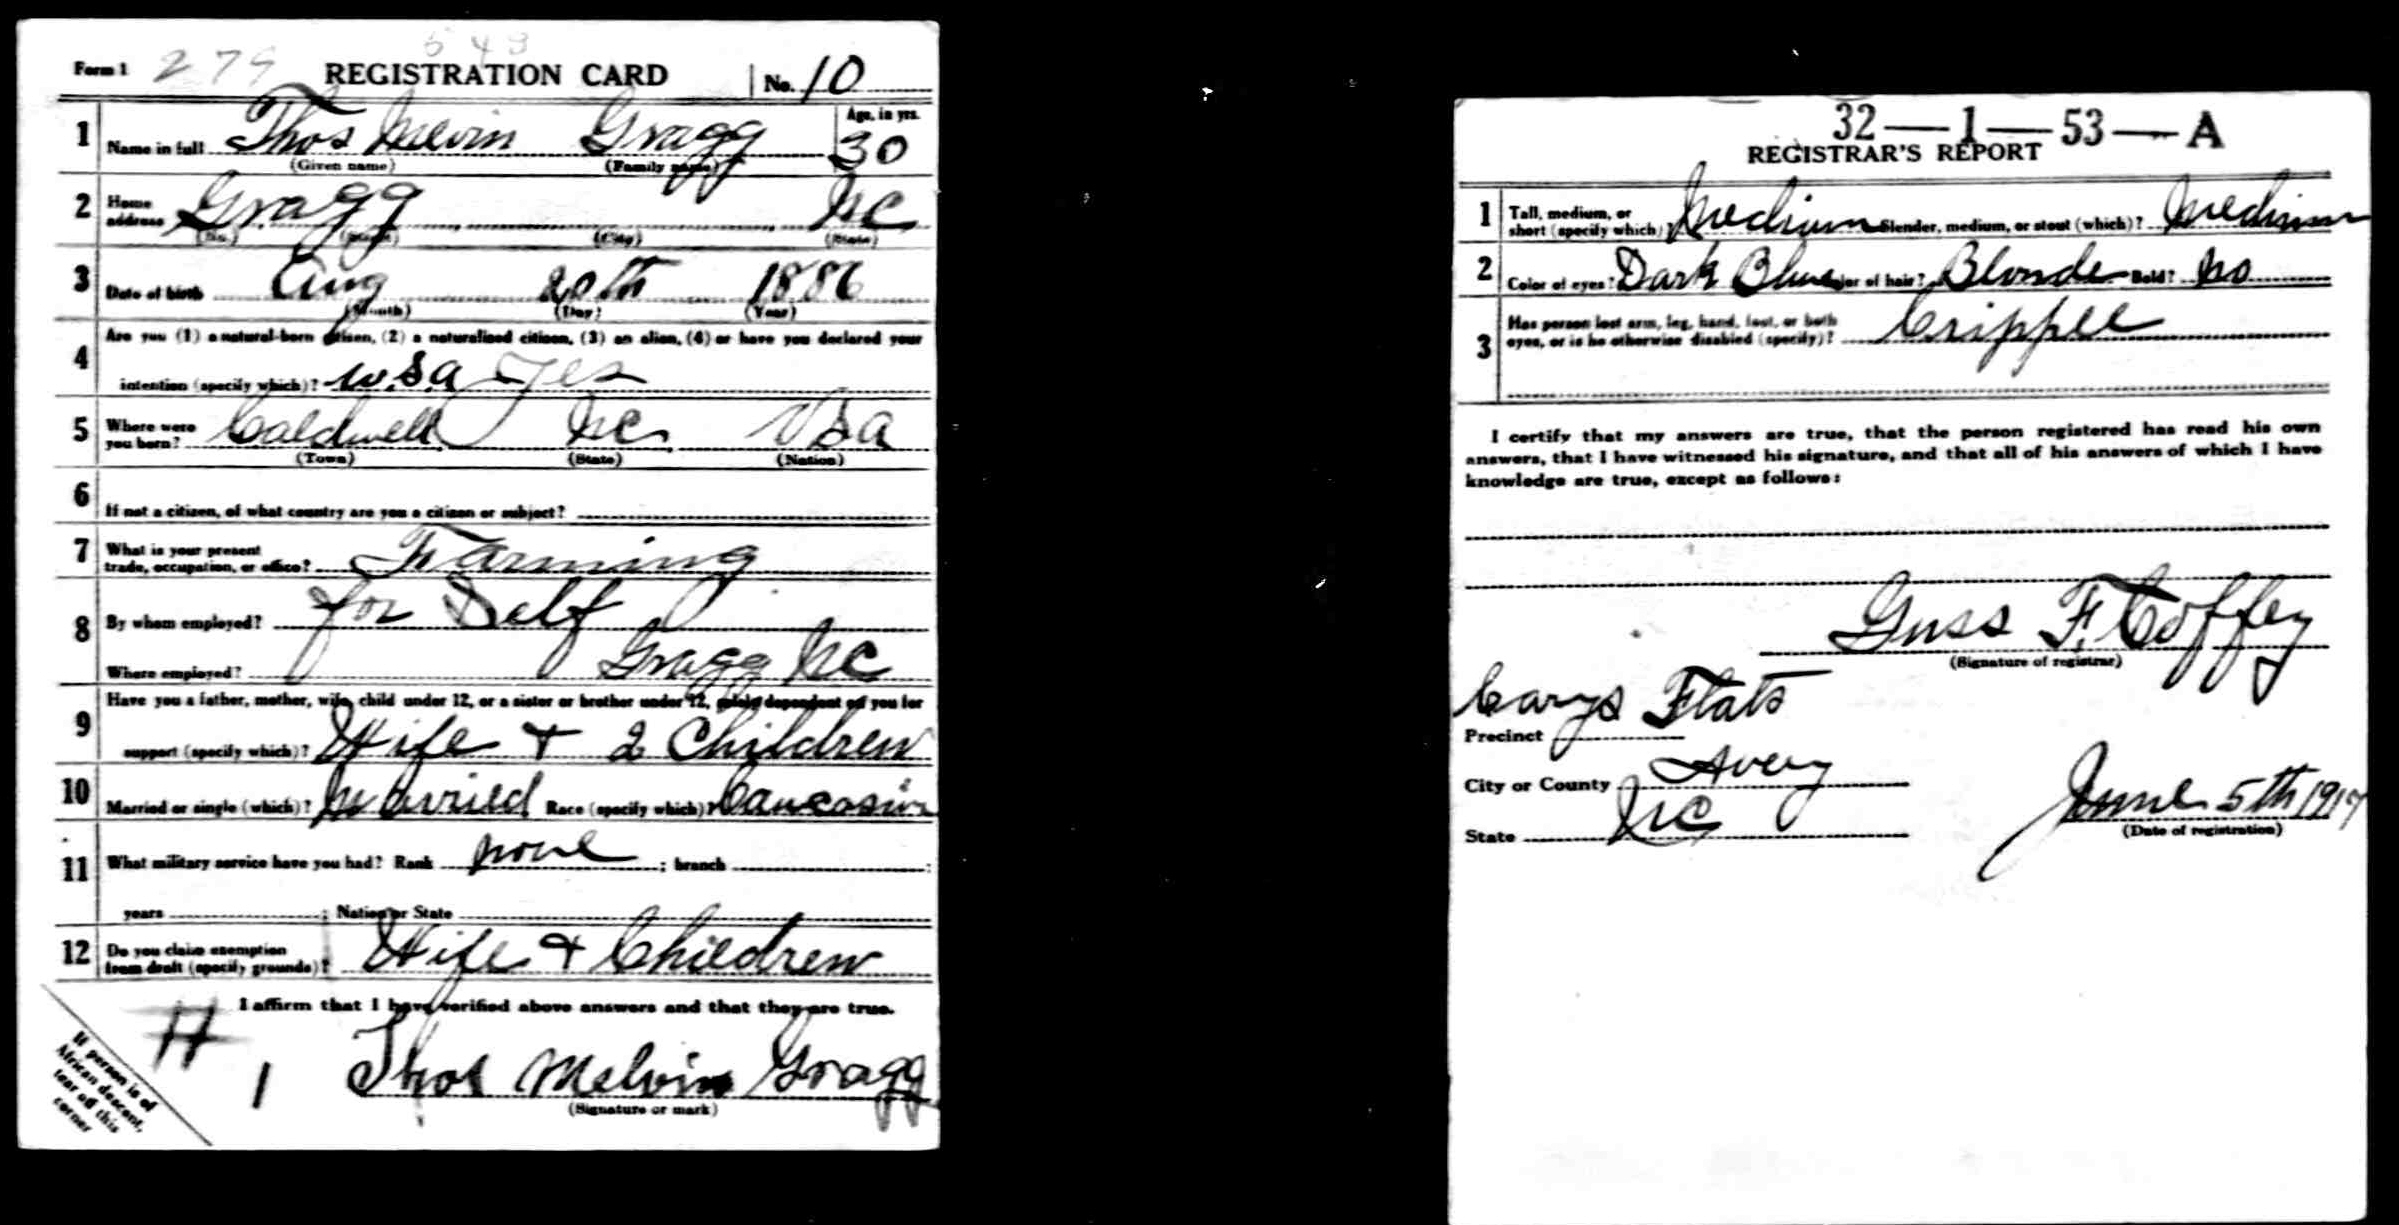 Form 1 279 REGISTRATION CARD No. 10
1 Name in full Thos Melvin Gragg Age, in yrs. 30
(Given name) (Family name)
2 Home address Gragg NC
(No.) (Street) (City) (State)
3 Date of birth Aug 20th 1886
(Month) (Day) (Year)
4 Are you (1) a natural-born citizen, (2) a naturalized citizen, (3) an alien, (4) or have you declared your
intention (specify which)? U.S.A Yes
5 Where were you born? Caldwell NC USA
(Town) (State) (Nation)
6 If not a citizen, of what country are you a citizen or subject?
7 What is your present trade, occupation, or office? Farming
8 By whom employed? for Self
Where employed? Gragg NC
9 Have you a father, mother, wife, child under 12, or a sister or brother under 12, solely dependent on you for
support (specify which)? Wife + 2 Children
10 Married or single (which)? Married Race (specify which)? Caucasian
11 What military service have you had? Rank none ; branch ;
years ; Nation or State
12 Do you claim exemption from draft (specify grounds)? Wife + Children
I affirm that I have verified above answers and that they are true.
1 Thos Melvin Gragg
(Signature or mark)
If person is of
African descent,
tear off this
corner
32—1—53—A
REGISTRAR'S REPORT
1 Tall, medium, or short (specify which)? Medium Slender, medium, or stout (which)? Medium
2 Color of eyes? Dark Blue Color of hair? Blonde Bald? No
3 Has person lost arm, leg, hand, foot, or both eyes, or is he otherwise disabled (specify)? Cripple
I certify that my answers are true, that the person registered has read his own
answers, that I have witnessed his signature, and that all of his answers of which I have
knowledge are true, except as follows:
Guss F. Coffey
(Signature of registrar)
Precinct Carys Flats
City or County Avery
State NC
June 5th 1917
(Date of registration)